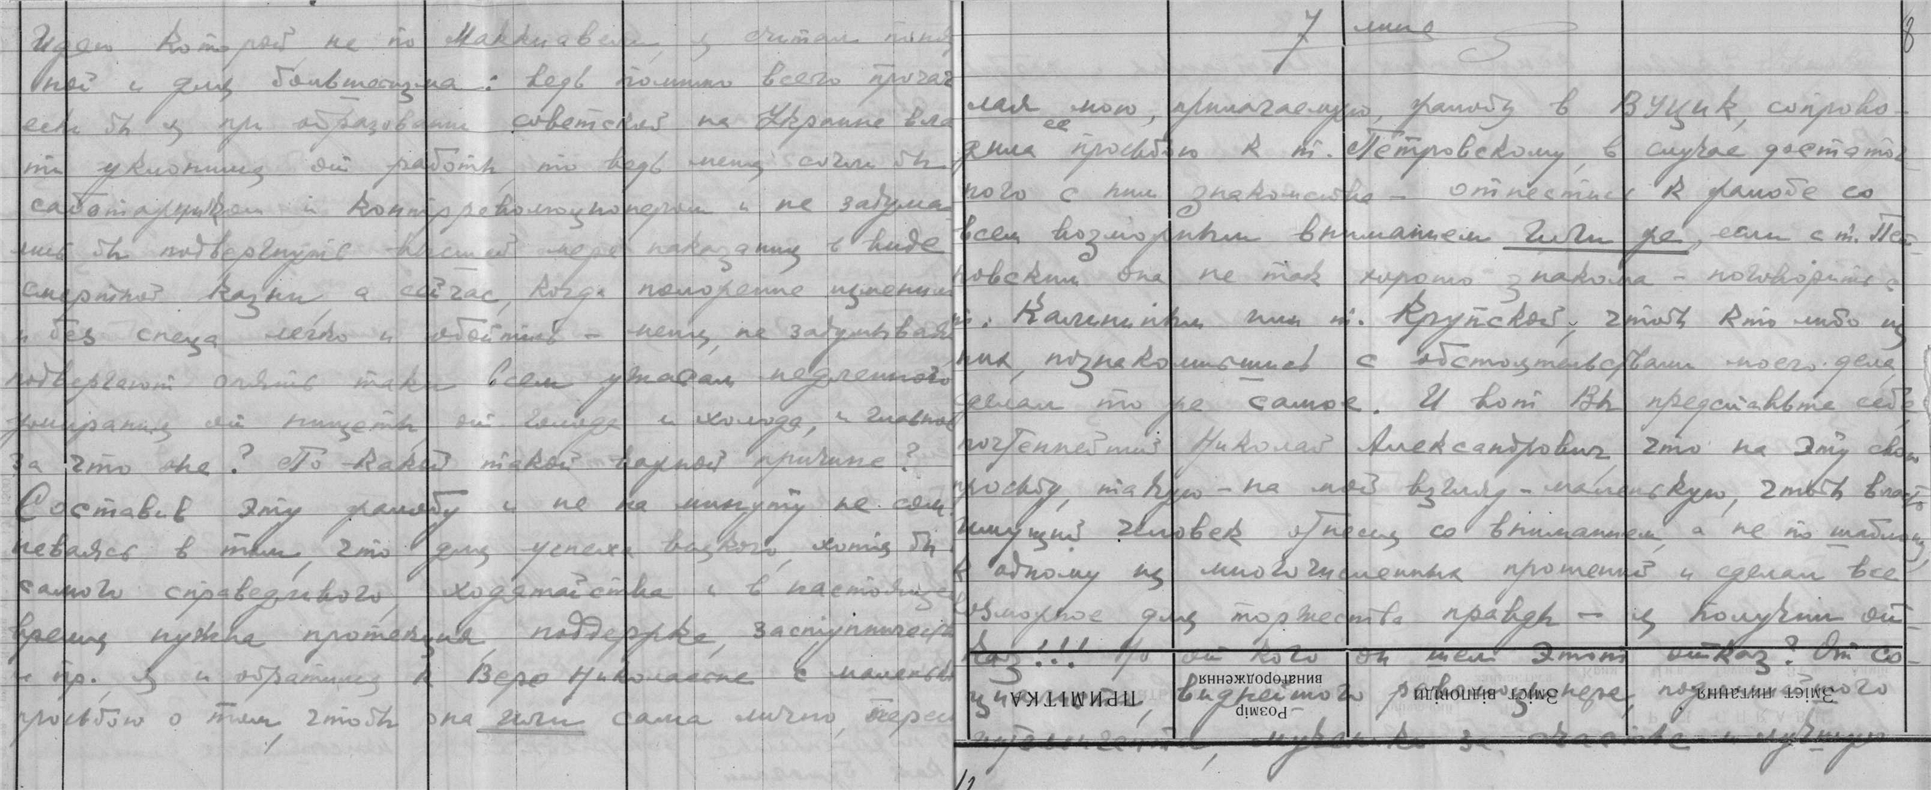 Идею которой, не по Маккиавели, я считал
ной и для большевизма: ведь помимо всего прочаг
если бы я при образовании советской на Украине вла
ти уклонился от работы, то ведь меня сочли бы
саботажником и контрреволюционером и не задума
лись бы подвергнуть высшей мере наказания в виде
смертной казни, а сейчас, когда положение
и без спеца легко и обойтись – меня, не задумывая
подвергают опять таки всем ужасам медленного
умирания от нищеты, от голода и холода, и главное
за что оно? По какой такой
причине?
Составив эту жалобу и не на минуту не сом
неваясь в том, что для успеха всякого, хотя бы
самого справедливого, ходатайства и в настоящее
время нужна протекция, поддержка, заступничество
и пр. я и обратился к Вере Николаевне с маленько
просьбою о том, чтобы она или сама лично,
7 8
лая мою, прилагаемую, жалобу в ВУЦИК, сопрово-
дила ее просьбою к т. Петровскому, в случае достаточ
ного с ним знакомства – отнестись к жалобе со
всем возможным вниманием или же, если с т. Пет
ровским она не так хорошо знакома – поговорить с
т. Калининым или т. Крупской, чтобы кто либо из
них, познакомившись с обстоятельствами моего дела,
сделал то же самое. И вот Вы представьте себе
почтеннейший Николай Александрович, что на эту свою
просьбу, такую – на мой взгляд – маленькую, чтобы власть
имущий человек отнесся со вниманием, а не по шаблону,
к одному из многочисленных прошений и сделал все
возможное для торжества правды – я получил от-
каз!!! Но от кого он шел этот отказ? От со-
виднейшего революционера,
мученика за счастье и лучшую
ПРИМІТКА
Розмір винагородження
Зміст відповіди
Зміст питання